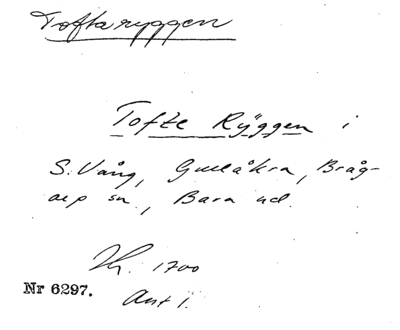 Toftaryggen
Tofte Ryggen i
S. Vång, Gullåkra, Bråg-
arp sn, Bara hd.
Kr. 1700
Ant 1.
Nr 6297.